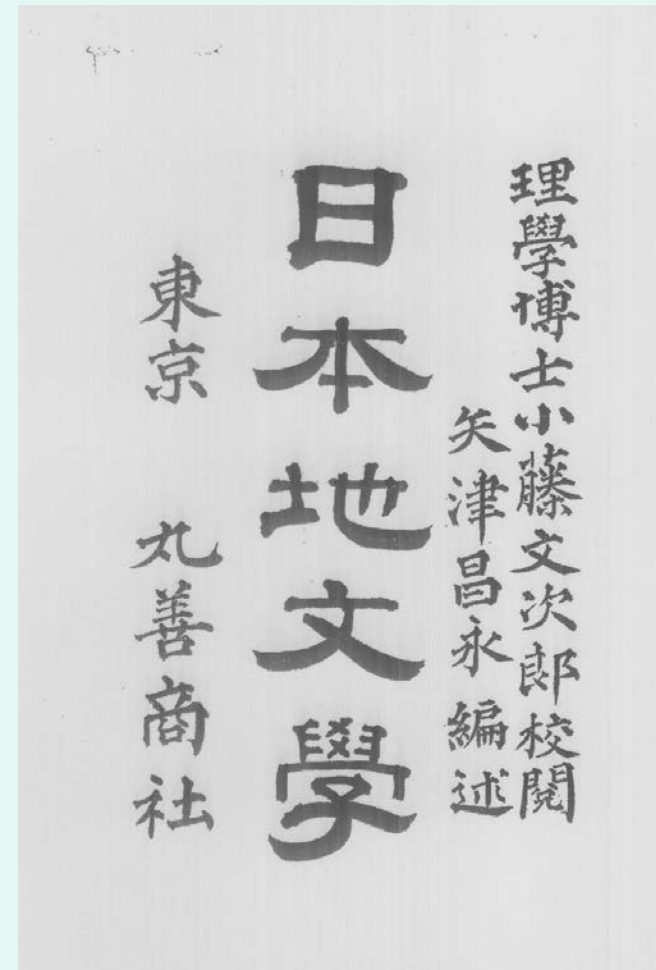 理學博士小藤文次郎校閲
矢津昌永編述
日本地文學
東京　丸善商社